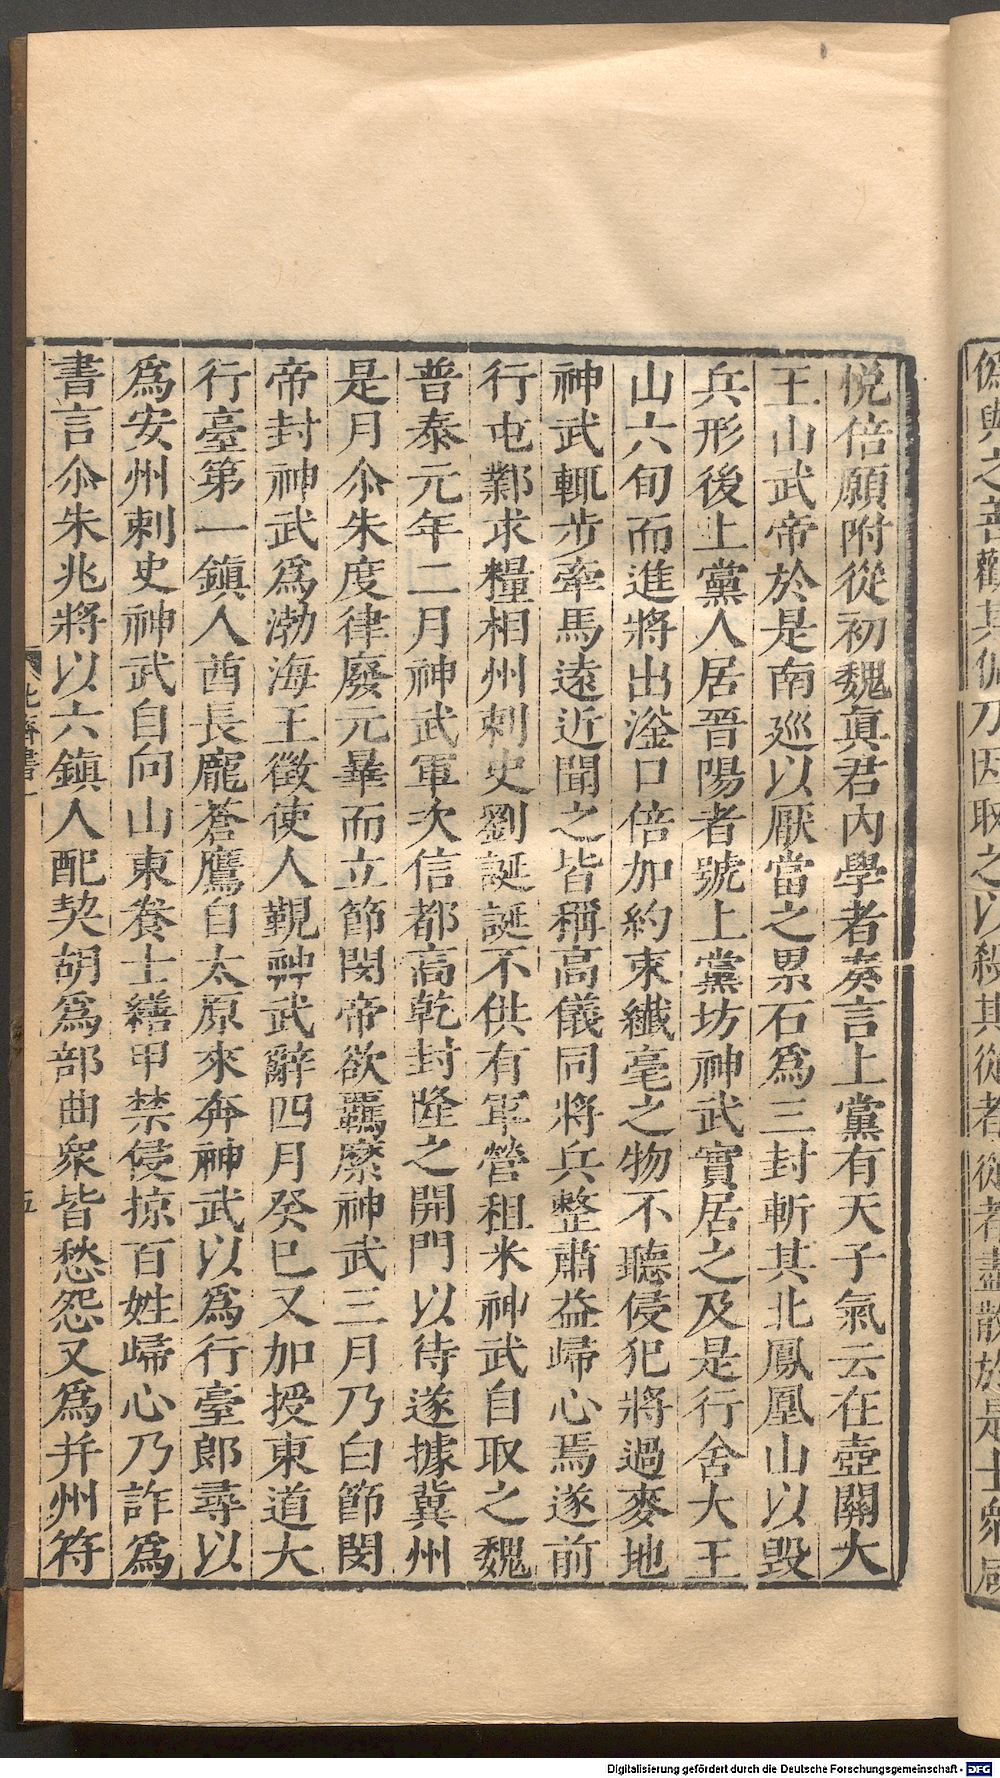 偽與之善觀其佩刀因取之以殺其從者從者盡散於是士衆咸
悅倍願附從初魏眞君內學者奏言上黨有天子氣云在壺關大
王山武帝於是南巡以厭當之累石爲三封斬其北鳳凰山以毀
兵形後上黨人居晉陽者號上黨坊神武實居之及是行舍大王
山六旬而進將出滏口倍加約束纖毫之物不聽侵犯將過麥地
神武輒步牽馬遠近聞之皆稱高儀同將兵整肅益歸心焉遂前
行屯鄴求糧相州刺史劉誕誕不供有軍營租米神武自取之魏
普泰元年二月神武軍次信都高乾封隆之開門以待遂據冀州
是月尒朱度律廢元曄而立節閔帝欲羈縻神武三月乃白節閔
帝封神武爲渤海王徵使人覲神武辭四月癸巳又加授東道大
行臺第一鎮人酋長龐蒼鷹自太原來奔神武以爲行臺郎尋以
爲安州刺史神武自向山東養士繕甲禁侵掠百姓歸心乃詐爲
書言尒朱兆將以六鎮人配契胡爲部曲衆皆愁怨又爲并州符
北齊書一
五
Digitalisierung gefördert durch die Deutsche Forschungsgemeinschaft - DFG